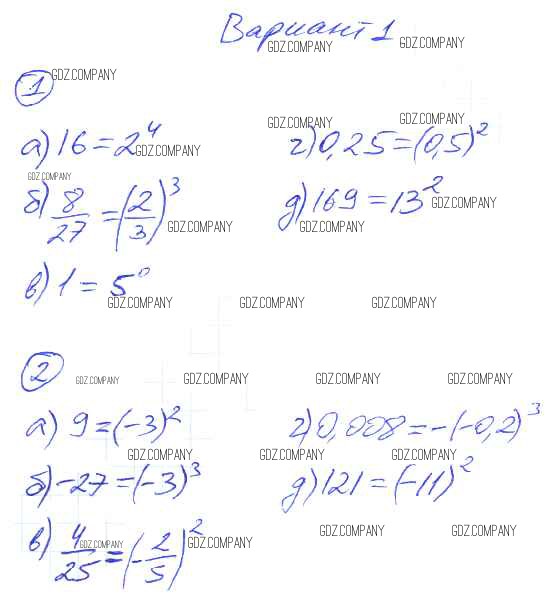 Вариант 1
GDZ.COMPANY GDZ.COMPANY
1 GDZ.COMPANY
GDZ.COMPANY GDZ.COMPANY
а) 16 = 2⁴ г) 0,25 = (0,5)²
GDZ.COMPANY
GDZ.COMPANY
б) 8/27 = (2/3)³ д) 169 = 13²
GDZ.COMPANY
GDZ.COMPANY GDZ.COMPANY
в) 1 = 5⁰
GDZ.COMPANY GDZ.COMPANY GDZ.COMPANY
2
GDZ.COMPANY GDZ.COMPANY GDZ.COMPANY GDZ.COMPANY
а) 9 = (-3)² г) 0,008 = -(-0,2)³
GDZ.COMPANY GDZ.COMPANY GDZ.COMPANY
б) -27 = (-3)³ д) 121 = (-11)²
GDZ.COMPANY GDZ.COMPANY
в) 4/25 = (-2/5)²
GDZ.COMPANY GDZ.COMPANY